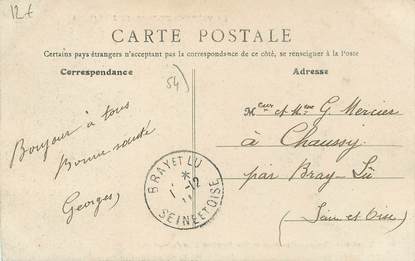 12 f
CARTE POSTALE
Certains pays étrangers n'acceptant pas la correspondance de ce côté, se renseigner à la Poste
Correspondance
Adresse
54)
Bonjour à tous
Bonne santé
Georges
Meur et Mme G. Mercier
à Chaussy
par Bray-Lû
(Seine et Oise)
BRAY ET LU
12
SEINE ET OISE